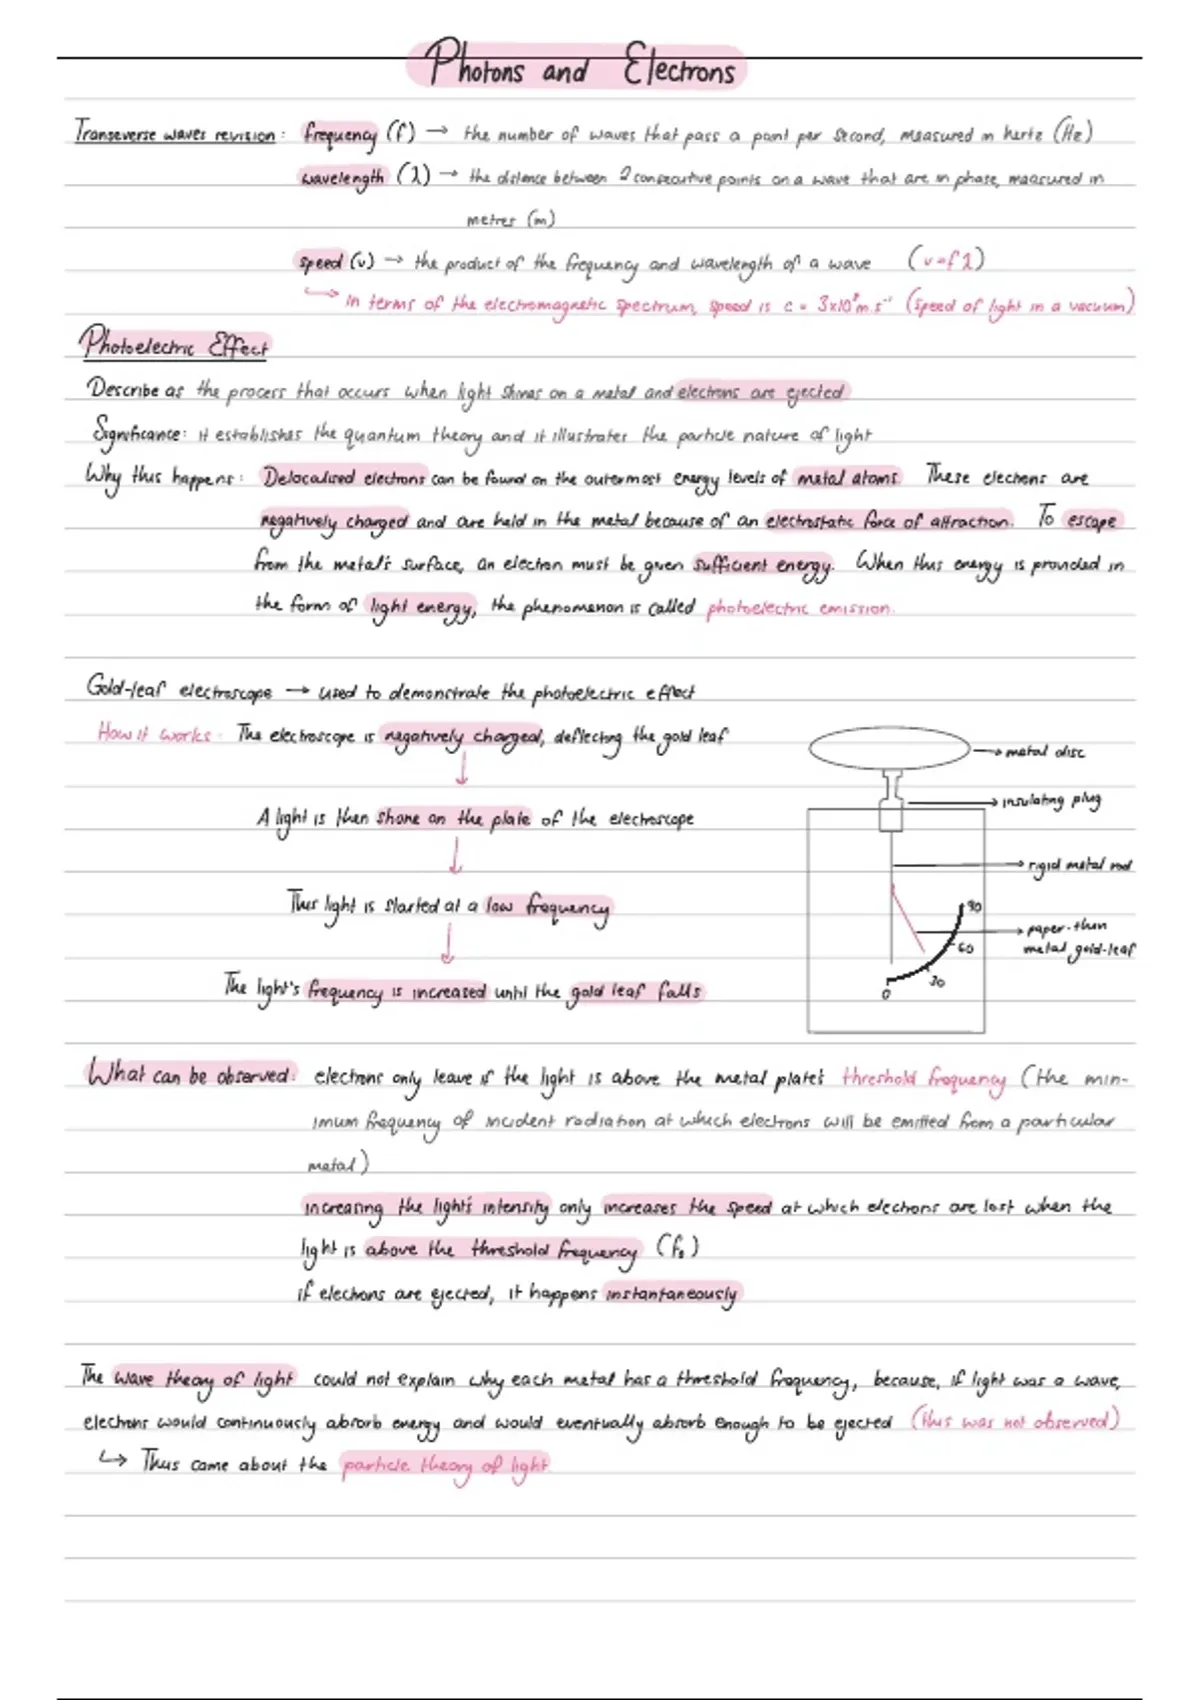 Photons and Electrons
Transeverse waves revision: frequency (f) → the number of waves that pass a point per second, measured in hertz (Hz)
wavelength (λ) → the distance between 2 consecutive points on a wave that are in phase, measured in
metres (m)
speed (v) → the product of the frequency and wavelength of a wave (v=fλ)
↳ in terms of the electromagnetic spectrum, speed is c = 3x10⁸m.s⁻¹ (speed of light in a vacuum)
Photoelectric Effect
Describe as the process that occurs when light shines on a metal and electrons are ejected
Significance: it establishes the quantum theory and it illustrates the particle nature of light
Why this happens: Delocalised electrons can be found on the outermost energy levels of metal atoms. These electrons are
negatively charged and are held in the metal because of an electrostatic force of attraction. To escape
from the metal's surface, an electron must be given sufficient energy. When this energy is provided in
the form of light energy, the phenomenon is called photoelectric emission.
Gold-leaf electroscope → used to demonstrate the photoelectric effect
How it works: The electroscope is negatively charged, deflecting the gold leaf
↓
A light is then shone on the plate of the electroscope
↓
This light is started at a low frequency
↓
The light's frequency is increased until the gold leaf falls
metal disc
insulating plug
rigid metal rod
paper-thin
metal gold-leaf
90
60
30
0
What can be observed: electrons only leave if the light is above the metal plate's threshold frequency (the min-
imum frequency of incident radiation at which electrons will be emitted from a particular
metal)
increasing the light's intensity only increases the speed at which electrons are lost when the
light is above the threshold frequency (f₀)
if electrons are ejected, it happens instantaneously
The wave theory of light could not explain why each metal has a threshold frequency, because, if light was a wave,
electrons would continuously absorb energy and would eventually absorb enough to be ejected (this was not observed)
↳ Thus came about the particle theory of light